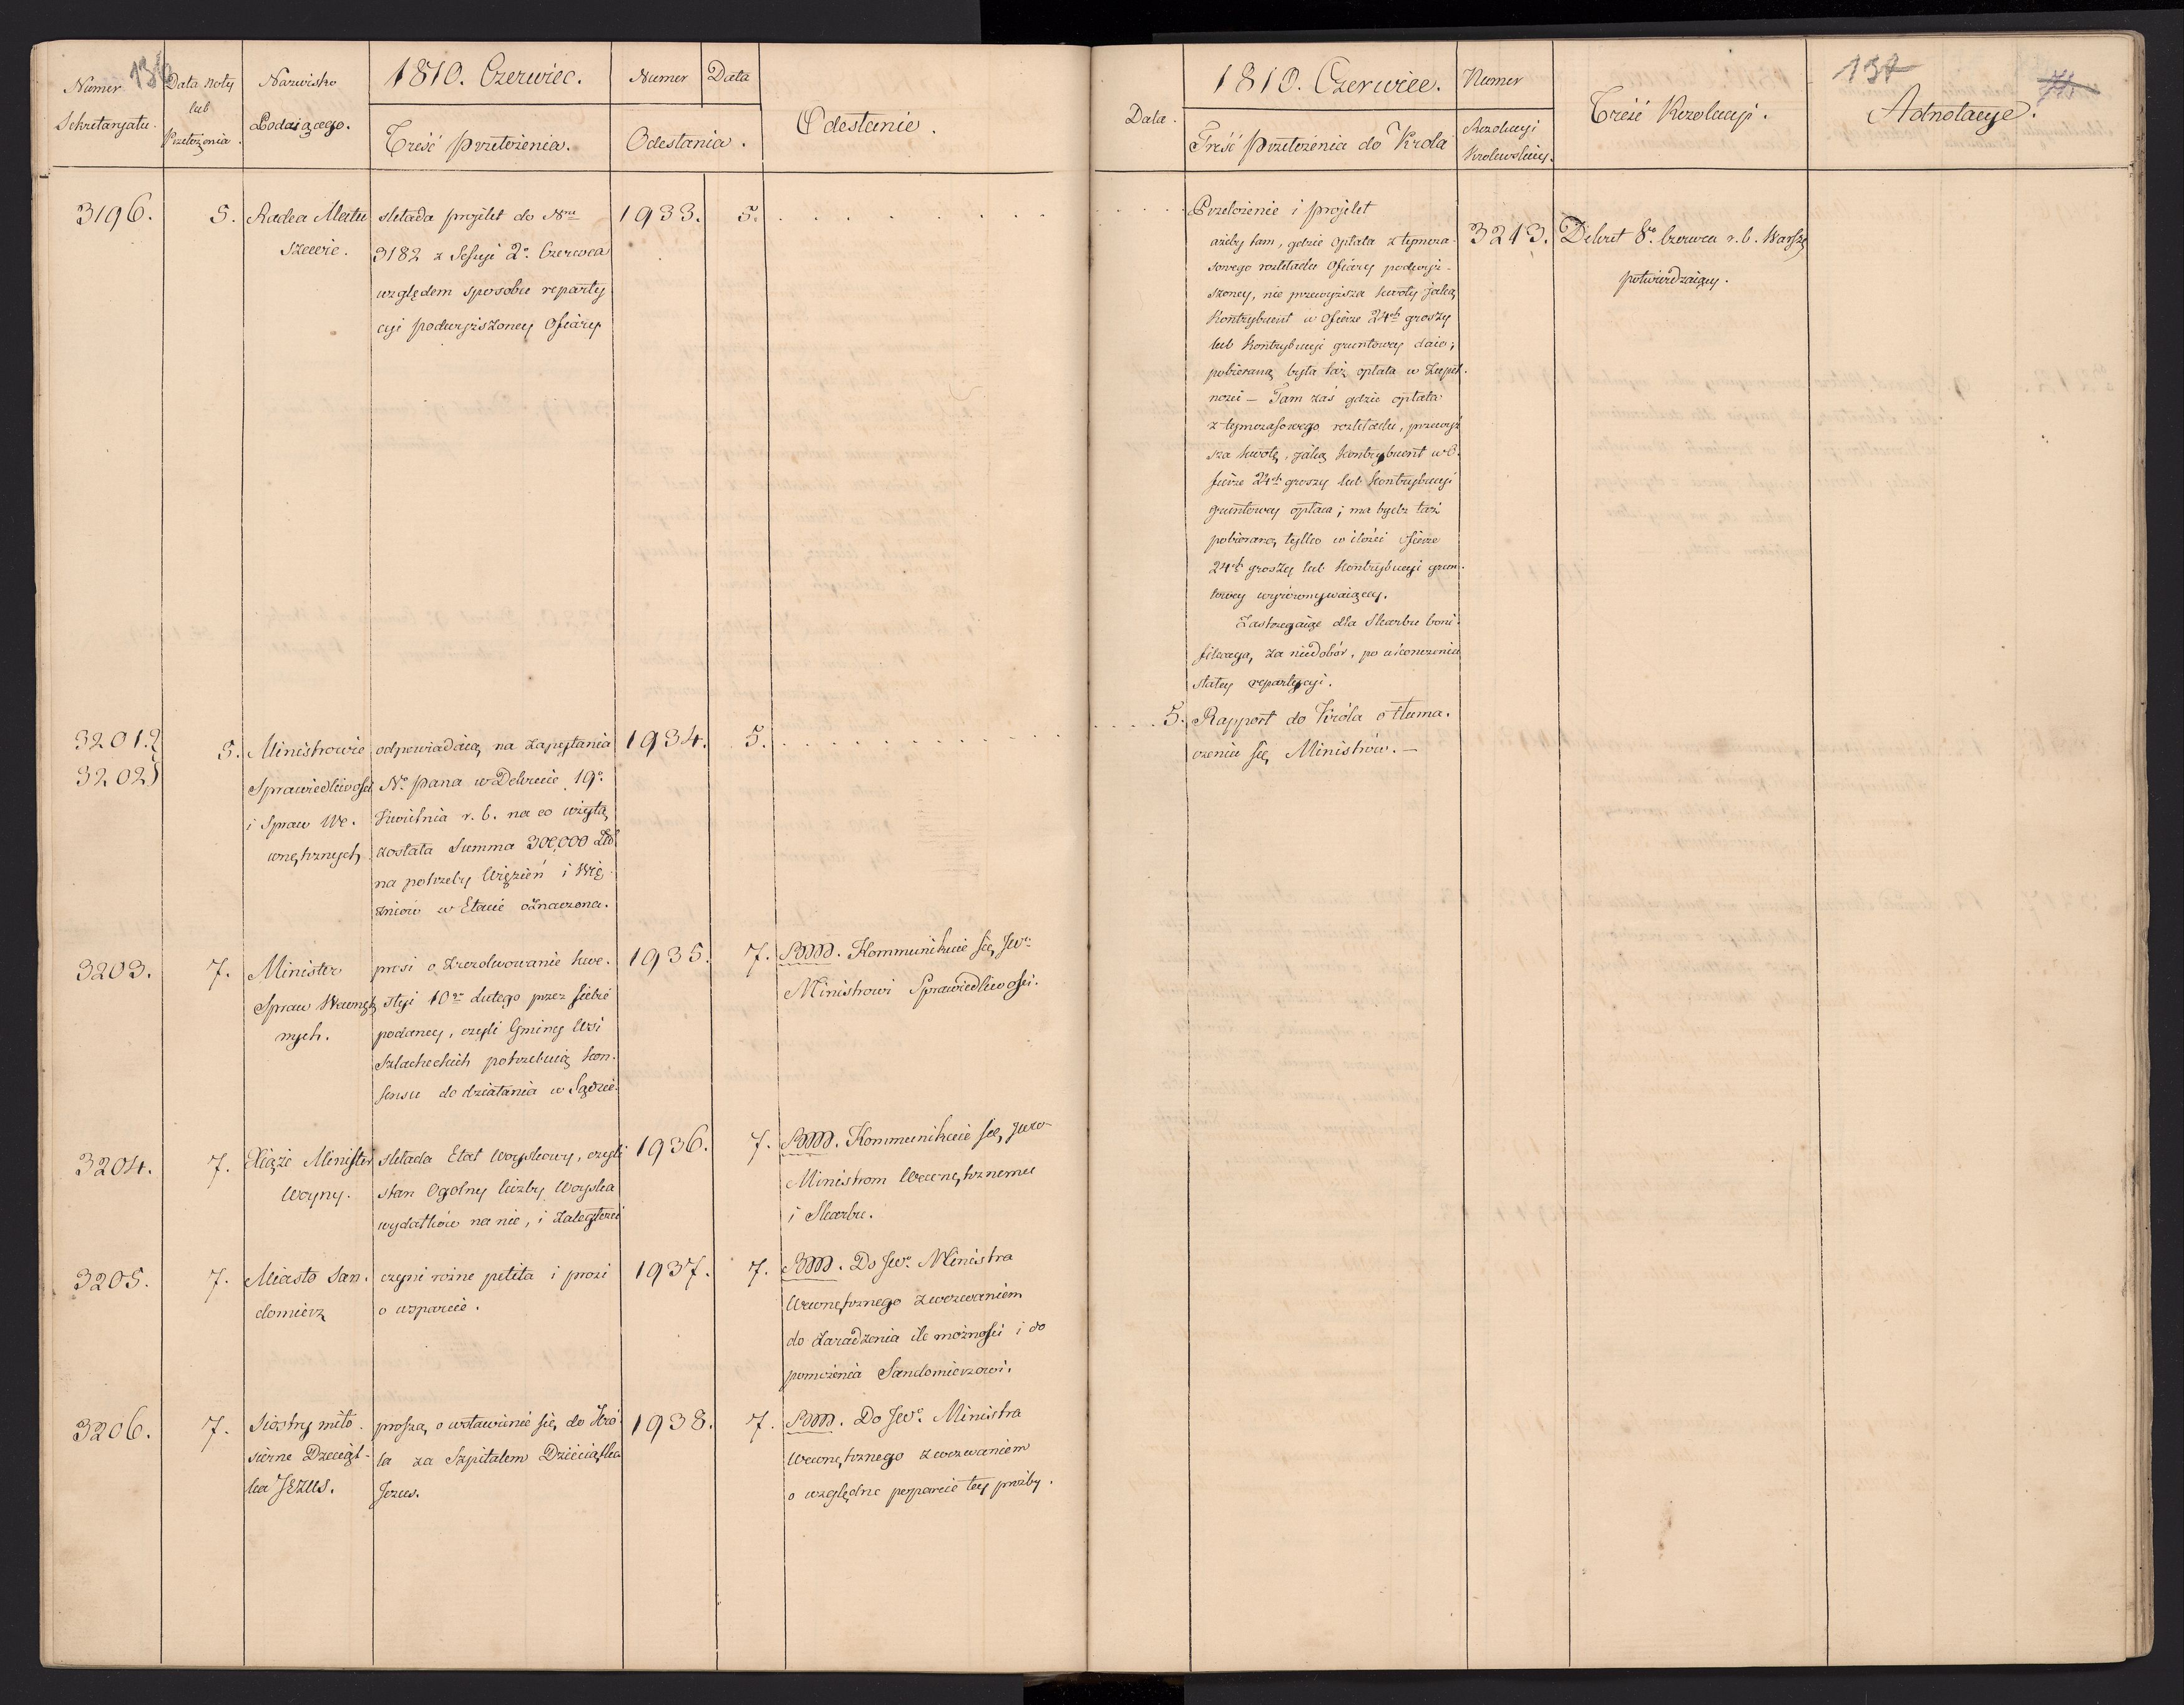 136
Numer
Sekretaryatu.
Data noty
lub
Przełożenia.
Nazwisko
Podaiącego.
1810. Czerwiec.
Treść Przełożenia.
Numer
Data
Odesłania.
Odesłanie.
3196.
5.
Radca Matu
szewic.
składa projekt do Nru
3182 z Sessyi 2º. Czerwca
względem sposobu reparty
cyi podwyższoney Ofiary
1933.
5.
3201.
3202
5.
Ministrowie
Sprawiedliwości
i Spraw We.
wnętrznych
odpowiadaią na zapytania
Nº Pana w Dekrecie 19º.
Kwietnia r. b. na co użytą
została Summa 300,000 Złł
na potrzeby Więzień i Wię
zniów w Etacie oznaczona.
1934.
5.
3203.
7.
Minister
Spraw Wewnętrz
nych.
prosi o zrezolwowanie kwe.
styi 10º Lutego przez siebie
podaney, czyli Gminy Wsi
Szlacheckich potrzebuią kon.
sensu do działania w Sądzie.
1935.
7.
Kommunikuie się JWº
Ministrowi Sprawiedliwości.
3204.
7.
Xiąże Minister
Woyny.
składa Etat Woyskowy, czyli
stan Ogolny liczby Woyska
wydatków na nie, i zaległości
1936.
7.
Kommunikuie się
Ministrom Wewnętrznemu
i Skarbu.
3205.
7.
Miasto San.
domierz
czyni rożne petita i prosi
o wsparcie.
1937.
7.
Do JWº. Ministra
Wewnętrznego z wezwaniem
do zaradzenia ile możności i do
pomożenia Sandomierzowi.
3206.
7.
Siostry miło
sierne Dzieciąt-
ka JEZUS.
proszą o wstawienie się do Kró
la za Szpitalem Dzieciątka
Jezus.
1938.
7.
Do JWº. Ministra
Wewnętrznego z wezwaniem
o względne poparcie tey prożby.
137
Data.
1810. Czerwiec.
Treść Przełożenia do Króla
Numer
Rezolucyi
Krolewskiey.
Treść Rezolucyi.
Adnotacye.
Przełożenie i projekt
ażeby tam, gdzie opłata z tymcza
sowego rozkładu Ofiary podwyż-
szoney, nie przewyższa kwoty jaką
Kontrybuent w Ofierze 24ch groszy
lub Kontrybucyi gruntowey daie;
pobieraną była taż opłata w zupeł.
ności — Tam zaś gdzie opłata
z tymczasowego rozkładu, przewyż
sza kwotę, jaką Kontrybuent w O.
fierze 24ch groszy lub Kontrybucyi
gruntowey opłaca; ma bydz taż
pobieraną tylko w ilości Ofierze
24ch groszy lub Kontrybucyi grun.
towey wyrównywaiącey.
Zastrzegaiąc dla Skarbu boni.
fikacyą, za niedobór, po ukończeniu
stałey repartycyi.
3213.
Dekret 8º. Czerwca r. b. Warszę
potwierdzaiący.
5.
Rapport do Króla o tłuma.
czeniu się Ministrów. —